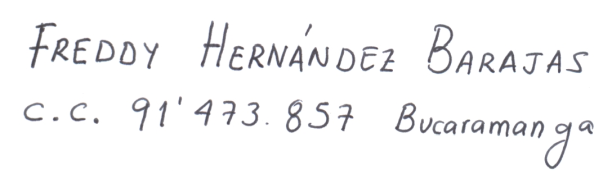 FREDDY HERNÁNDEZ BARAJAS
C.C. 91'473.857 Bucaramanga